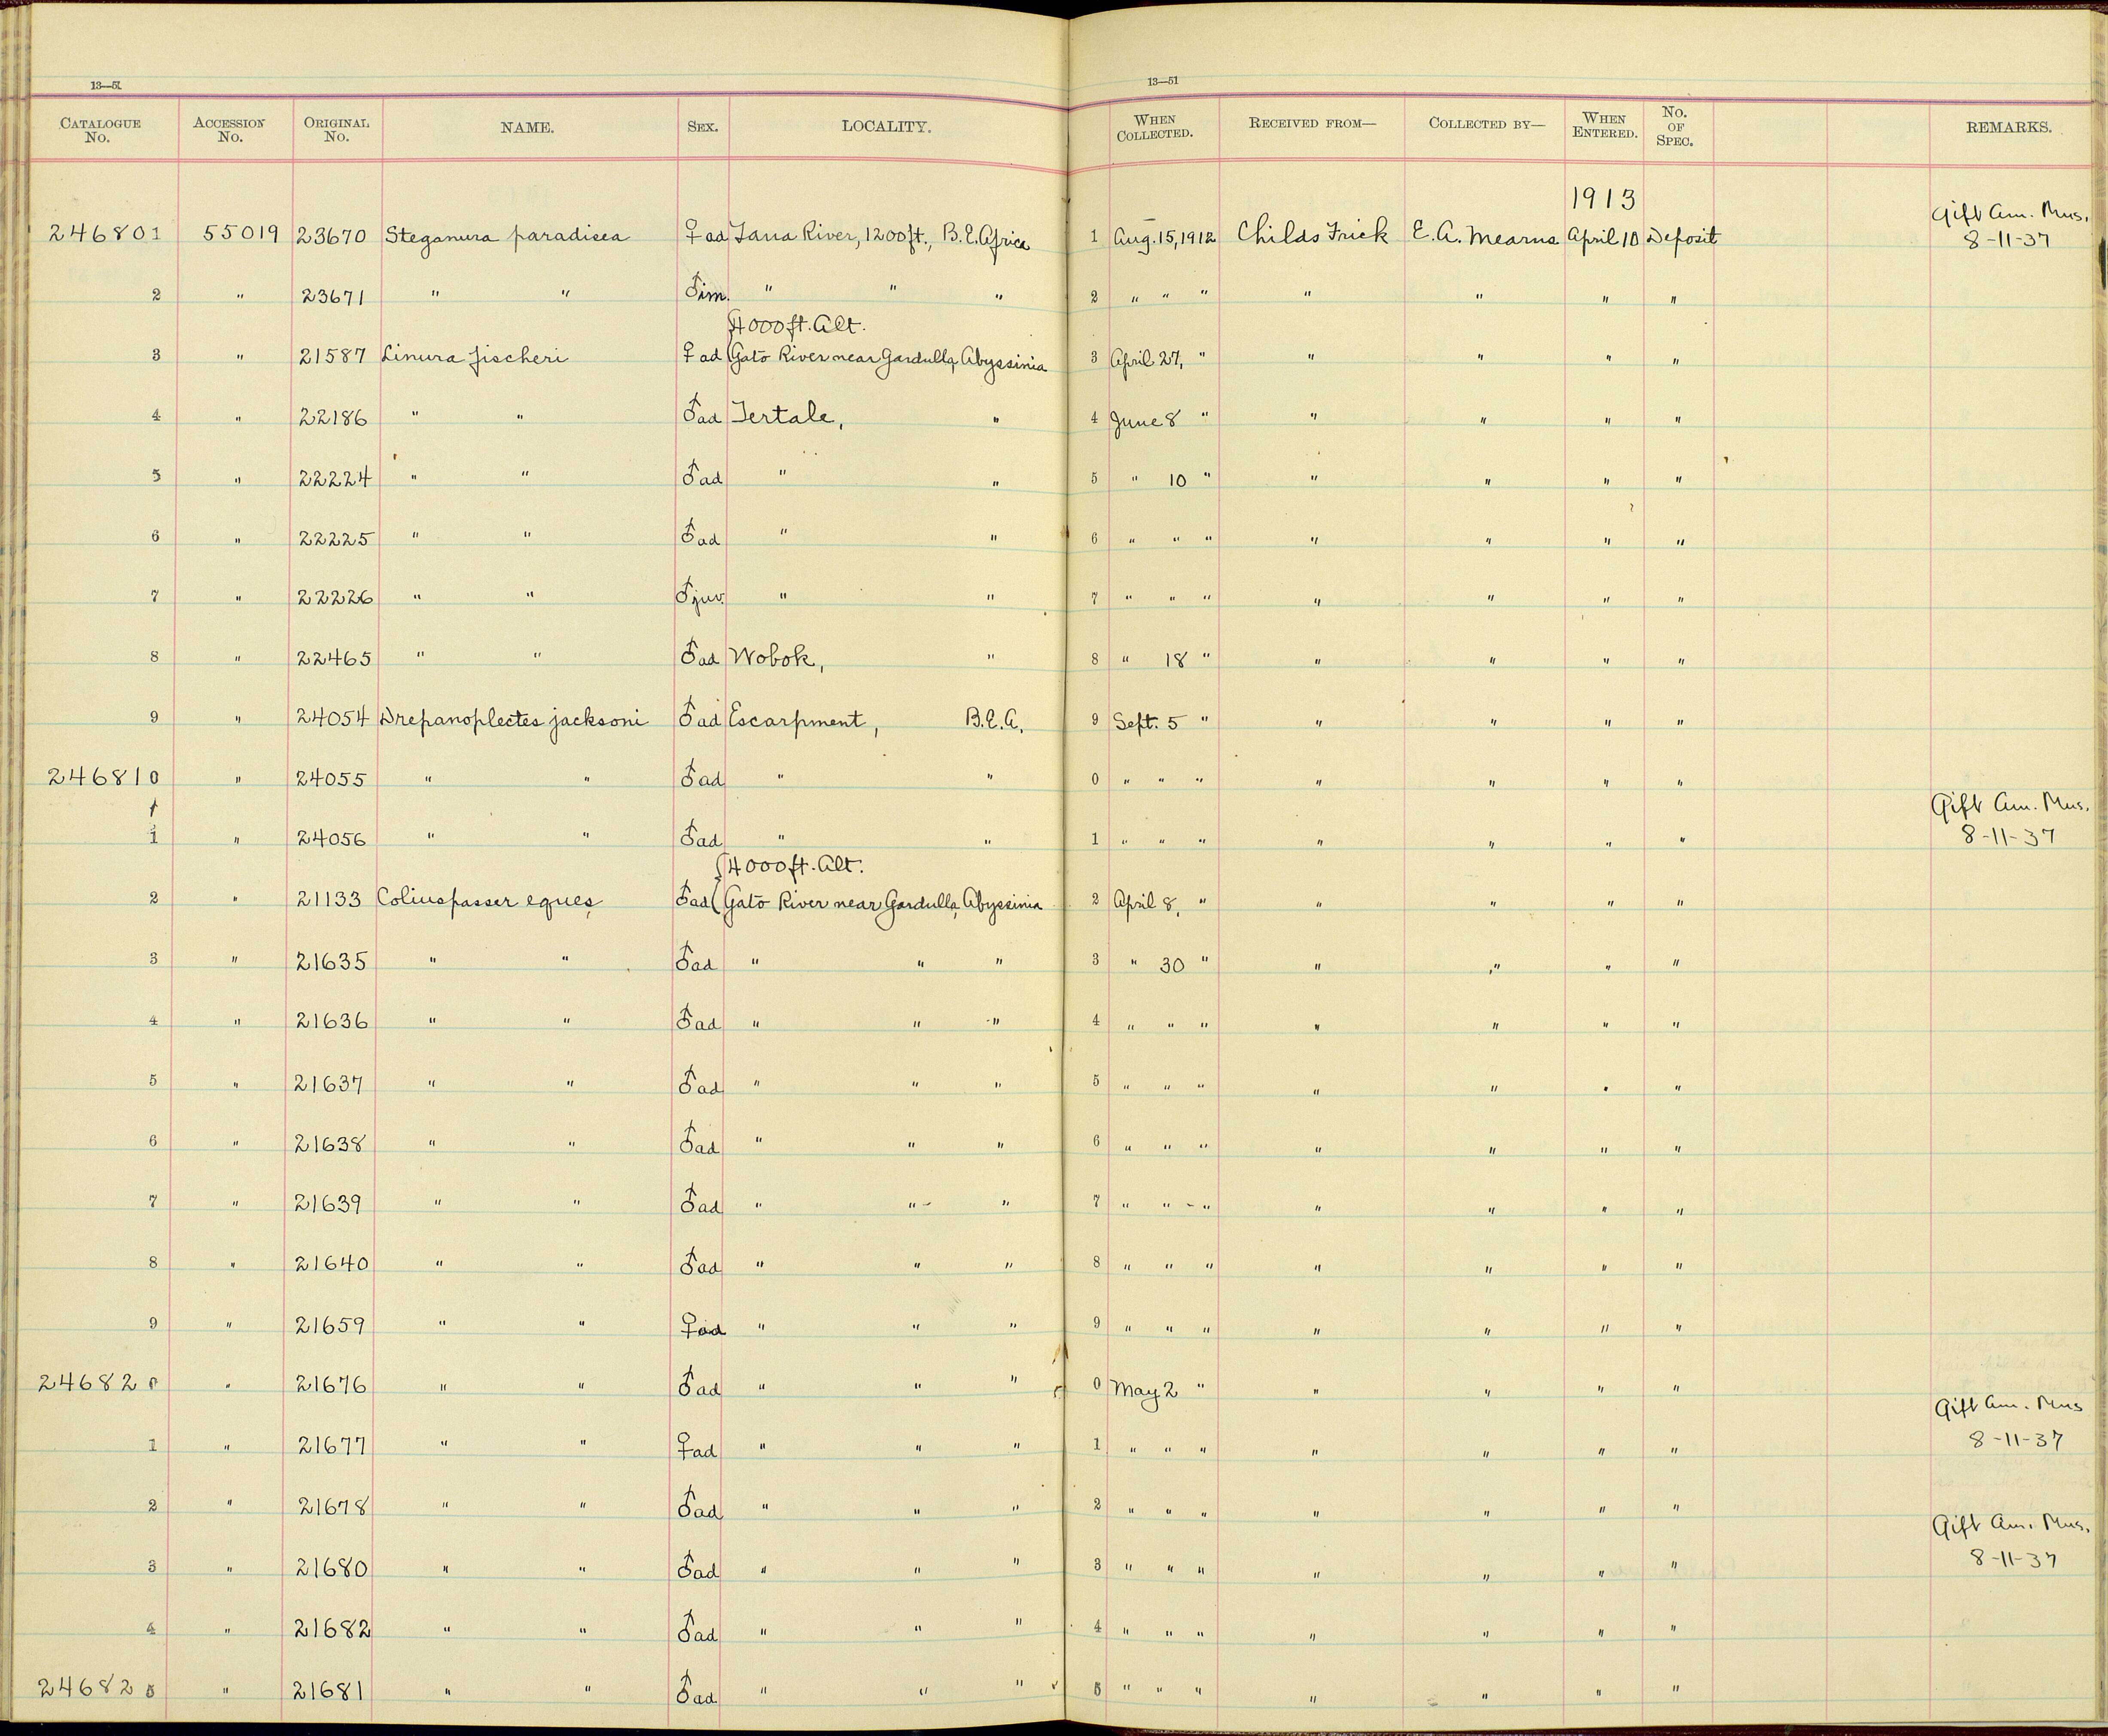 13—51 13—51
CATALOGUE No. ACCESSION No. ORIGINAL No. NAME. SEX. LOCALITY. WHEN COLLECTED. RECEIVED FROM— COLLECTED BY— WHEN ENTERED. No. OF SPEC. REMARKS.
1913
Gift Am. Mus.
246801 55019 23670 Steganura paradisea ♀ ad Tana River, 1200 ft., B.E. Africa 1 Aug. 15, 1912 Childs Frick E. A. Mearns April 10 Deposit 8-11-37
2 " 23671 " " ♂ im. " " " 2 " " " " " " "
4000 ft. Alt.
3 " 21587 Linura fischeri ♀ ad Gato River near Gardulla, Abyssinia 3 April 27, " " " " "
4 " 22186 " " ♂ ad Tertale, " 4 June 8 " " " " "
5 " 22224 " " ♂ ad " " 5 " 10 " " " " "
6 " 22225 " " ♂ ad " " 6 " " " " " " "
7 " 22226 " " ♂ juv. " " 7 " " " " " " "
8 " 22465 " " ♂ ad Wobok, " 8 " 18 " " " " "
9 " 24054 Drepanoplectes jacksoni ♂ ad Escarpment, B.E.A. 9 Sept. 5 " " " " "
246810 " 24055 " " ♂ ad " " 0 " " " " " " "
Gift Am. Mus.
1 " 24056 " " ♂ ad " " 1 " " " " " " " 8-11-37
4000 ft. Alt.
2 " 21133 Coliuspasser eques ♂ ad Gato River near Gardulla, Abyssinia 2 April 8, " " " " "
3 " 21635 " " ♂ ad " " " 3 " 30 " " " " "
4 " 21636 " " ♂ ad " " " 4 " " " " " " "
5 " 21637 " " ♂ ad " " " 5 " " " " " " "
6 " 21638 " " ♂ ad " " " 6 " " " " " " "
7 " 21639 " " ♂ ad " " " 7 " " " " " " "
8 " 21640 " " ♂ ad " " " 8 " " " " " " "
9 " 21659 " " ♀ ad " " " 9 " " " " " " "
246820 " 21676 " " ♂ ad " " " 0 May 2 " " " " "
Gift Am. Mus
1 " 21677 " " ♀ ad " " " 1 " " " " " " " 8-11-37
2 " 21678 " " ♂ ad " " " 2 " " " " " " "
Gift Am. Mus.
3 " 21680 " " ♂ ad " " " 3 " " " " " " " 8-11-37
4 " 21682 " " ♂ ad " " " 4 " " " " " " "
246825 " 21681 " " ♂ ad " " " 5 " " " " " " "